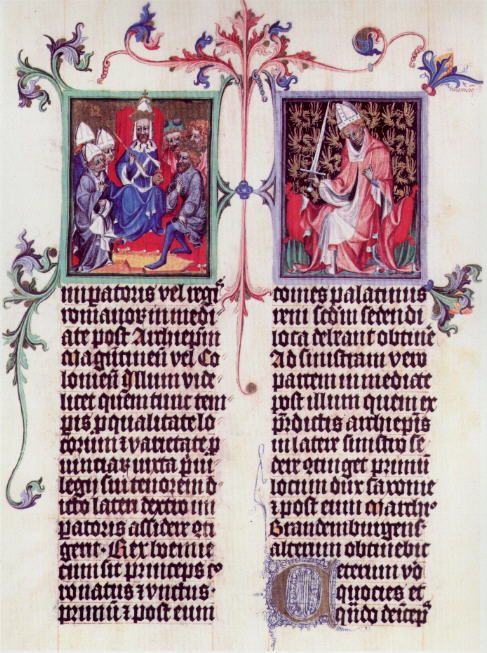 imꝑatoris vel regꝭ
romanoꝝ in medi
ate post Archiepm̄
magūtineñ vel Co
lonieñ Illum vide
licet quem tunc tem
pis ꝑ qualitate lo
coꝝum ⁊ varietate ꝓ
uinciaꝝ iuxta pui
legij sui tenorem di
cto latere dextro im
patoris assidere ꝯti
gerit · Rex boemie
cum sit princeps co
ronatus ⁊ vnctus
primum ⁊ post eum
comes palatinus
reni scdm sedendi
loca debeant obtine
Ad sinistram vero
partem inmediate
post illum quem ex
p̄dictis archiepis
in latere sinistro se
dere ꝯtinget primū
locum dux saxonie
⁊ post eum marchi
Brandemburgens
alterum obtinebit
Ceterum vo
quocies et
qn̄do deincep